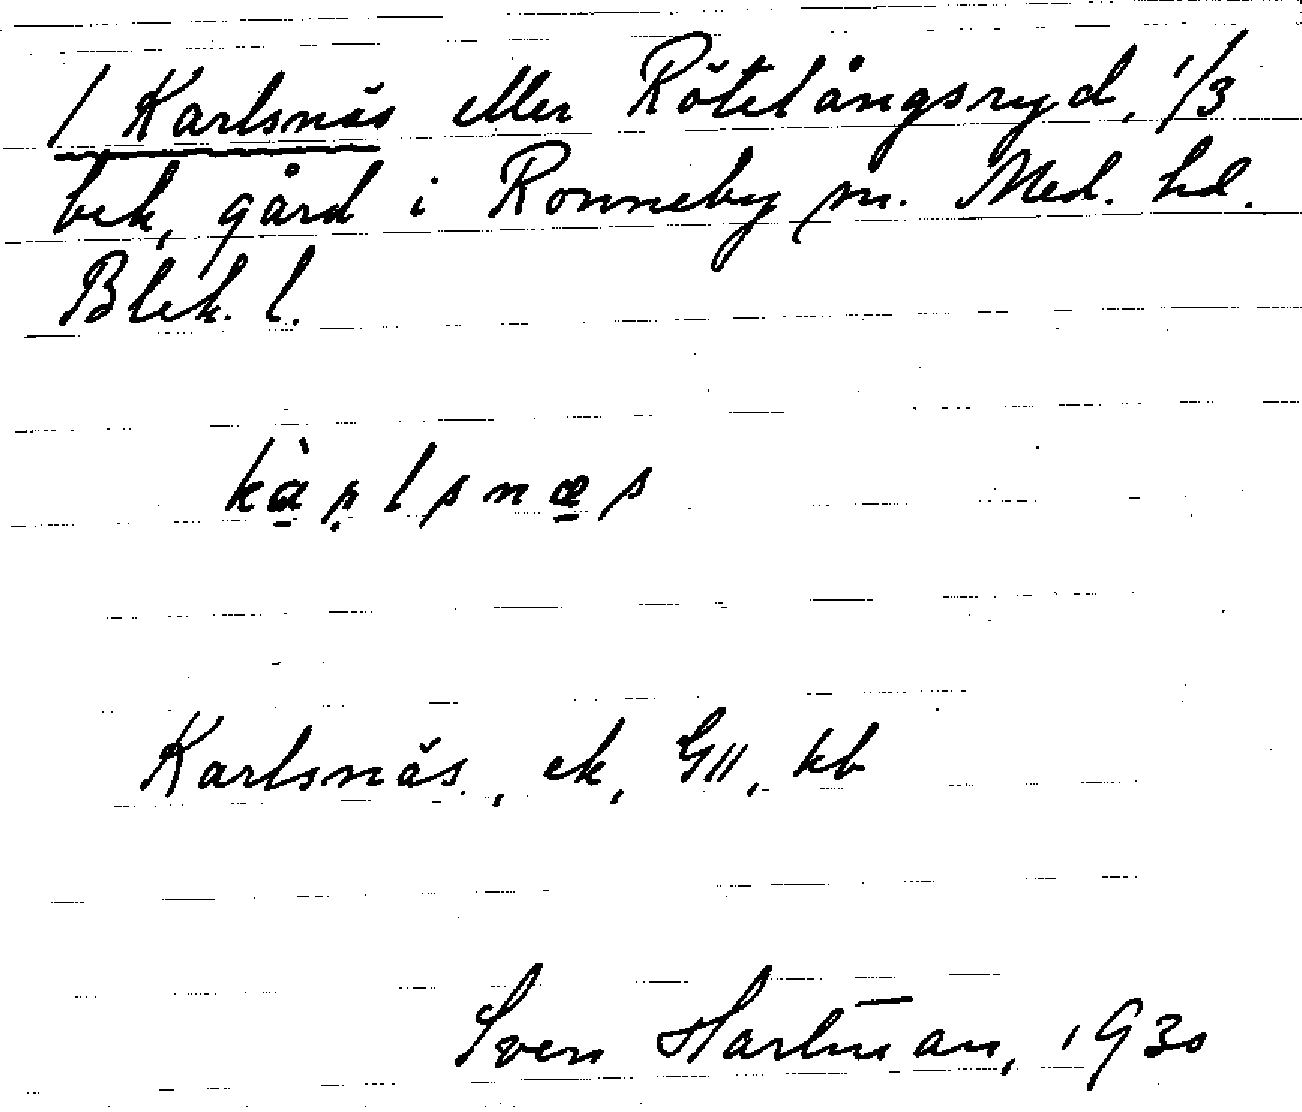 / Karlsnäs eller Rötelångsryd, 1/3
bek, gård i Ronneby sn. Med. hd.
Blek. l.
kà̠ṛlsnæ̠s
Karlsnäs, ek, GII, kb
Sven Hartman, 1930